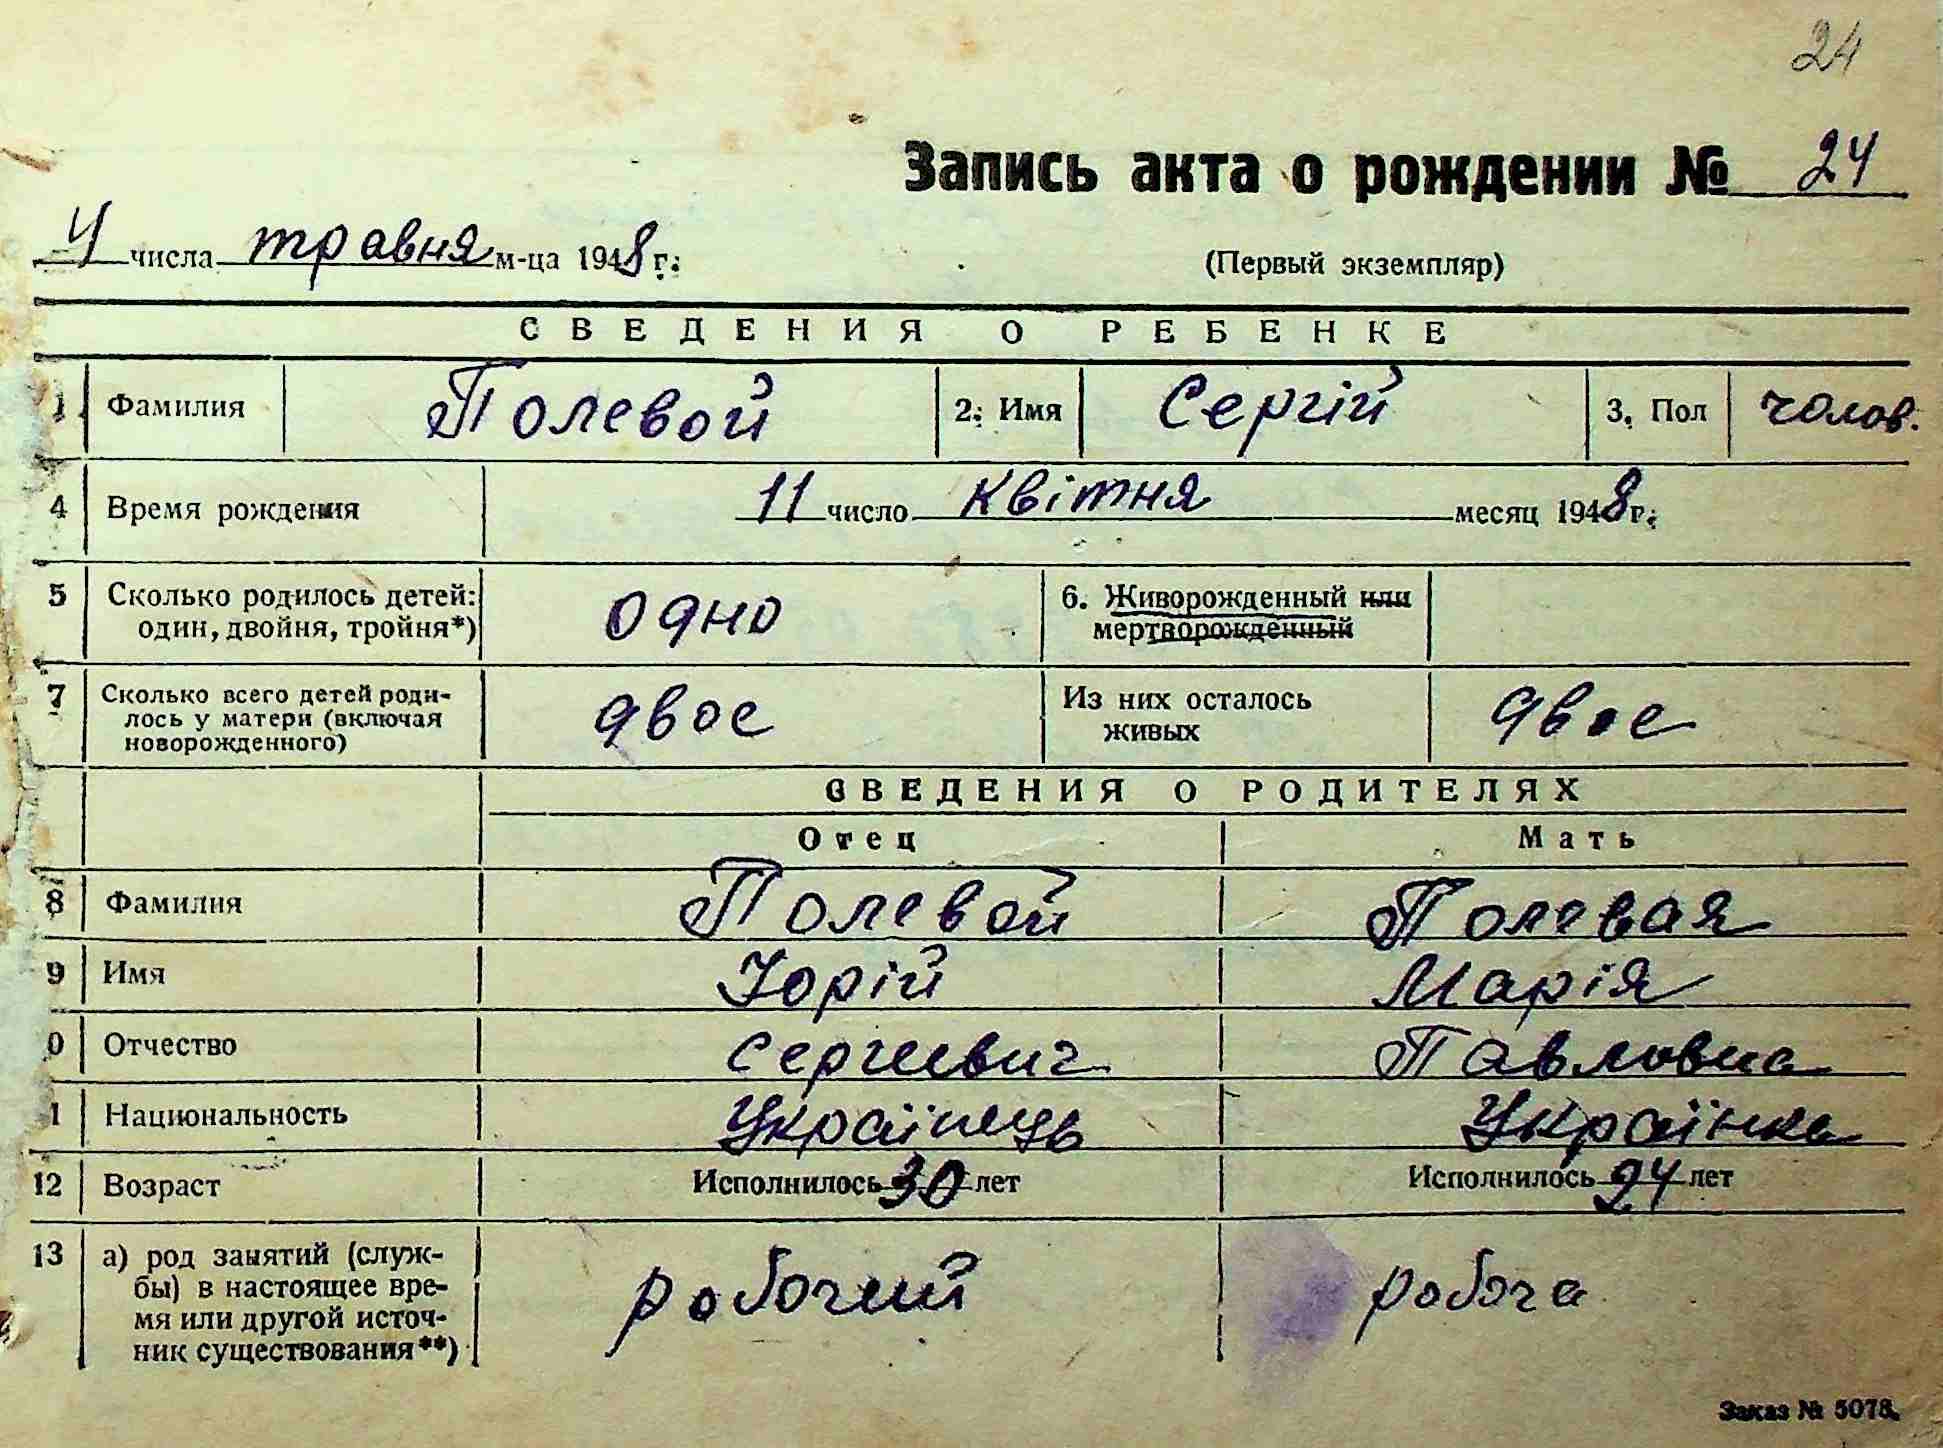 24
Запись акта о рождении № 24
4 числа травня м-ца 1948 г.
(Первый экземпляр)
СВЕДЕНИЯ О РЕБЕНКЕ
1 Фамилия Полевой 2. Имя Сергій 3. Пол чолов.
4 Время рождения 11 число квітня месяц 1948 г.
5 Сколько родилось детей: один, двойня, тройня*) одно 6. Живорожденный или мертворожденный
7 Сколько всего детей роди-
лось у матери (включая
новорожденного) двое Из них осталось живых двое
СВЕДЕНИЯ О РОДИТЕЛЯХ
Отец Мать
8 Фамилия Полевой Полевая
9 Имя Юрій Марія
0 Отчество Сергиевич Павловна
1 Национальность Українець Українка
12 Возраст Исполнилось 30 лет Исполнилось 24 лет
13 а) род занятий (служ-
бы) в настоящее вре-
мя или другой источ-
ник существования**) робочий робоча
Заказ № 5078.